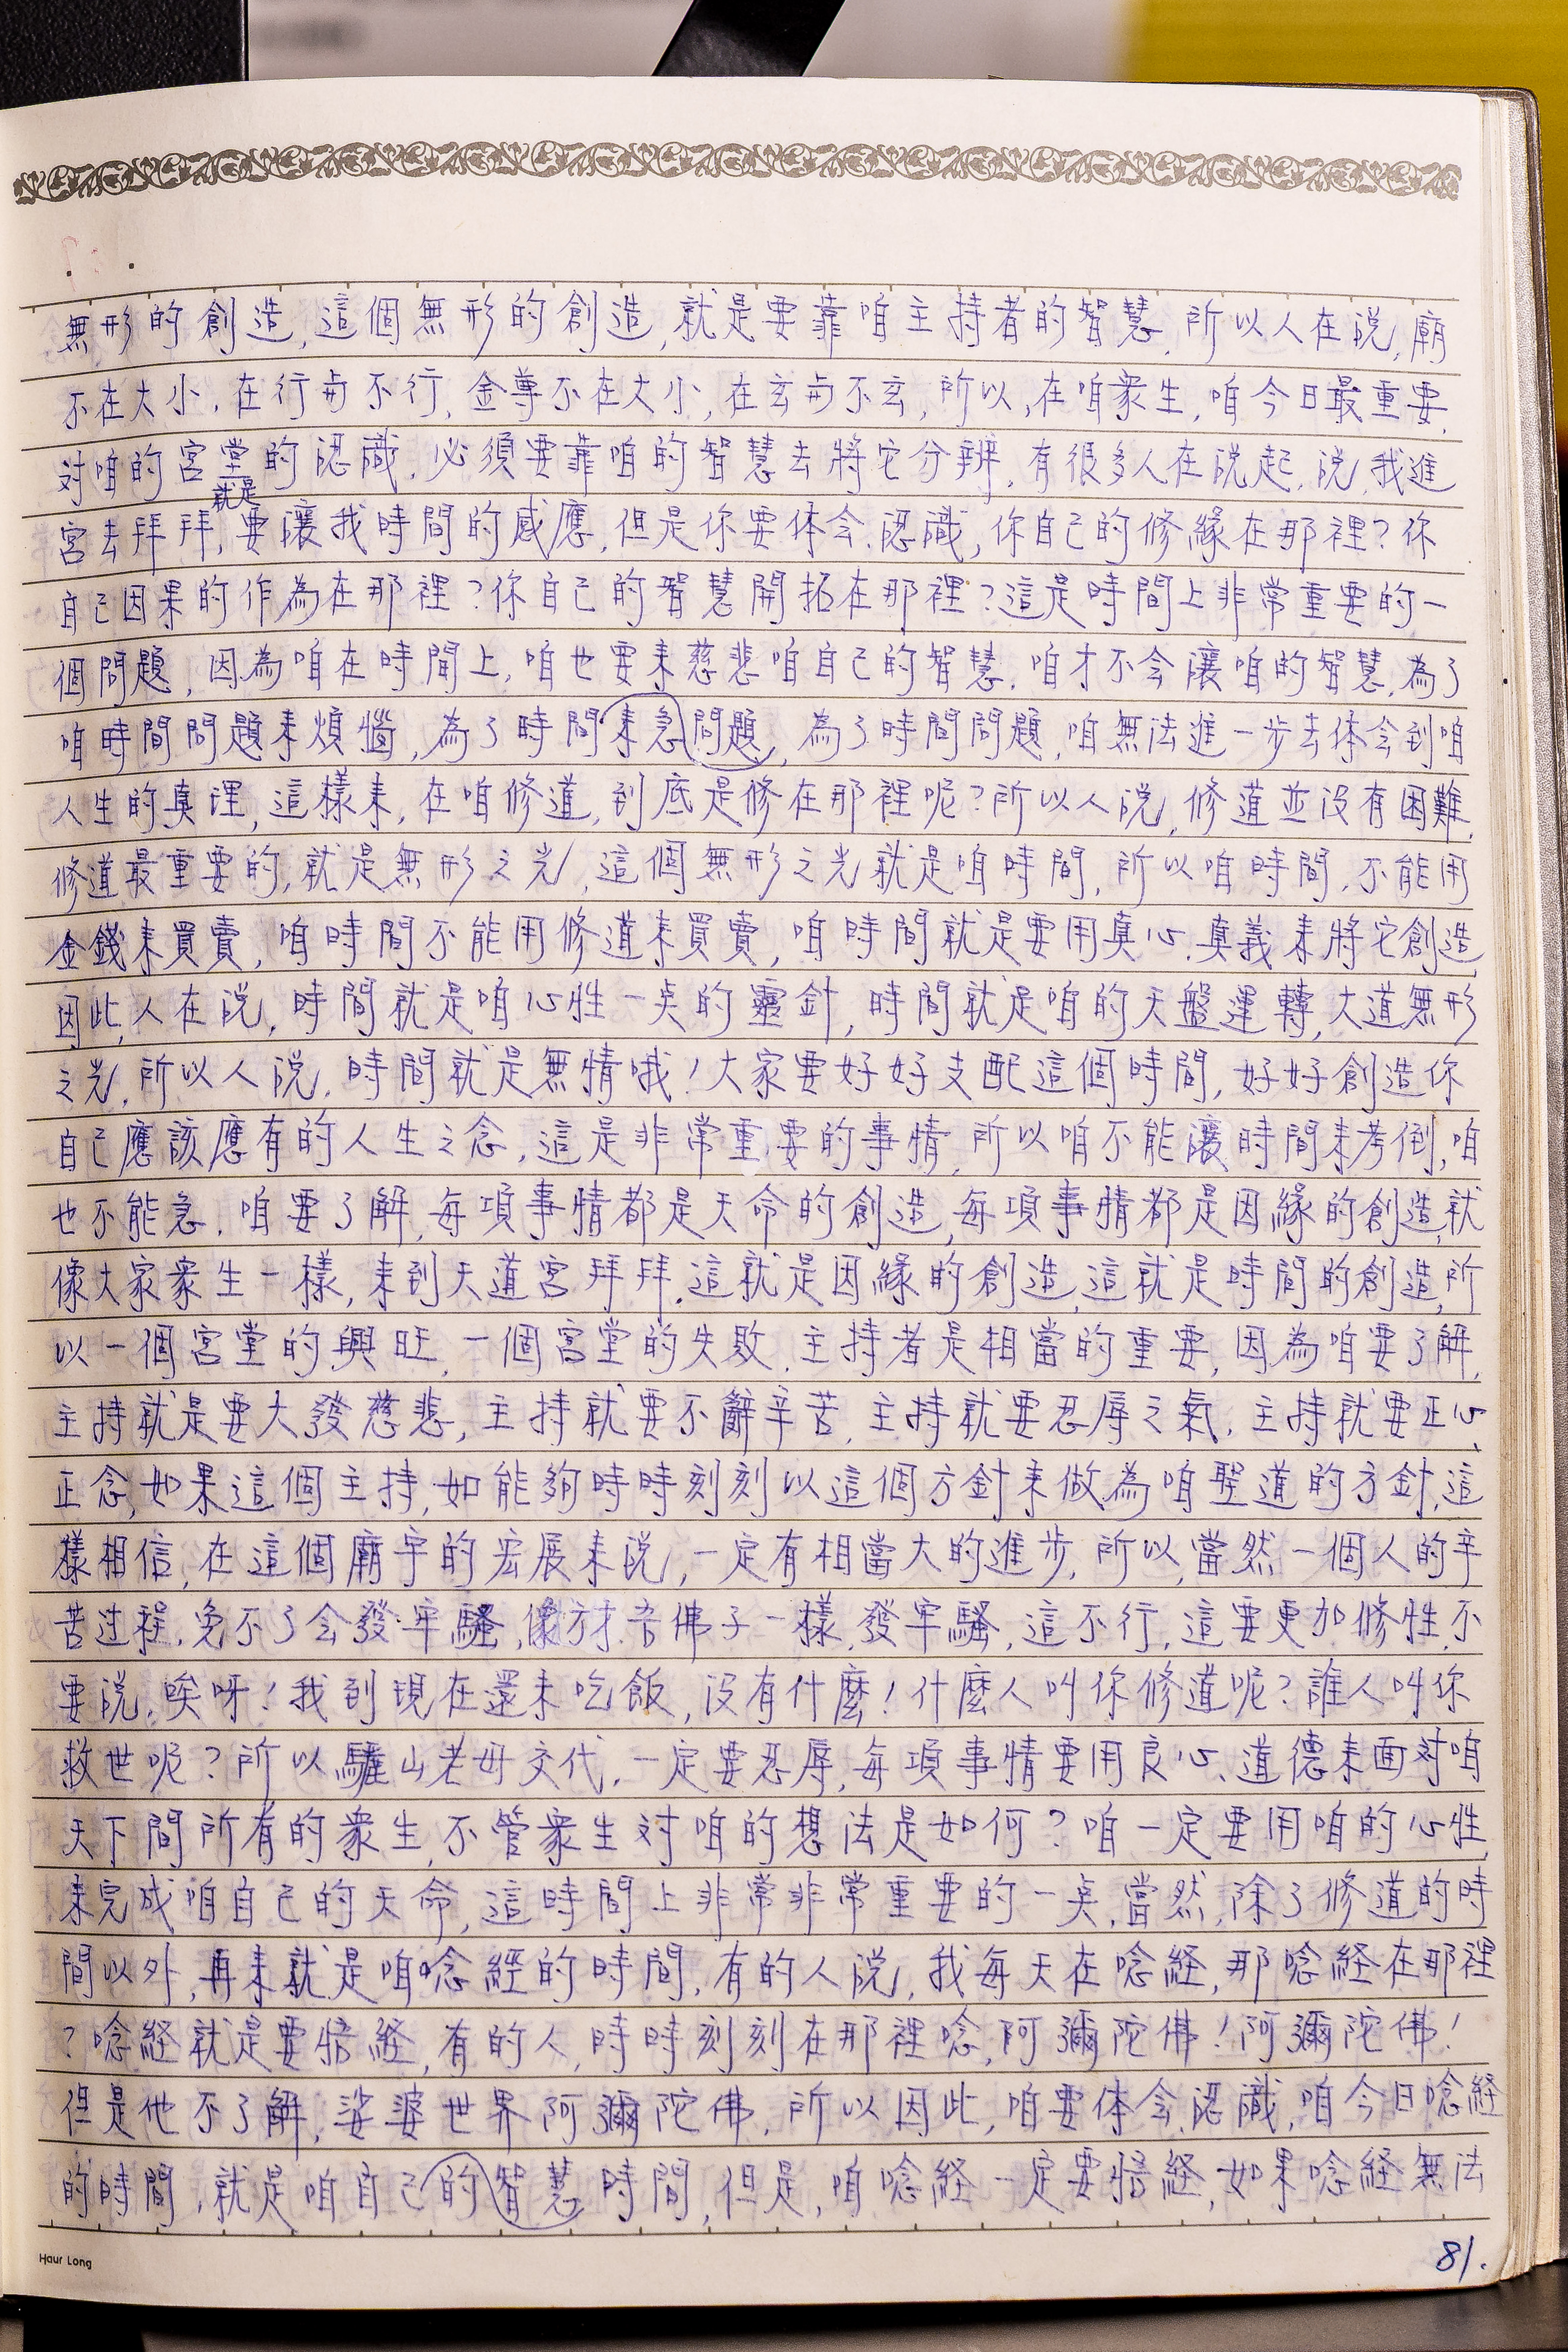 無形的創造,這個無形的創造,就是要靠咱主持者的智慧,所以人在說,廟
不在大小,在行与不行,金尊不在大小,在玄与不玄,所以,在咱衆生,咱今日最重要,
对咱的宮堂的認識,必須要靠咱的智慧去將它分辨,有很多人在說起,說,我進
宮去拜拜,就是要讓我時間的感應,但是你要体会、認識,你自己的修緣在那裡?你
自己因果的作為在那裡?你自己的智慧開拓在那裡?這是時間上非常重要的一
個問題,因為咱在時間上,咱也要来慈悲咱自己的智慧,咱才不会讓咱的智慧,為了
咱時間問題来煩惱,為了時間来急問題,為了時間問題,咱無法進一步去体会到咱
人生的真理,這樣来,在咱修道,到底是修在那裡呢?所以人說,修道並没有困難,
修道最重要的,就是無形之光,這個無形之光就是咱時間,所以咱時間,不能用
金錢来買賣,咱時間不能用修道来買賣,咱時間就是要用真心、真義来將它創造,
因此,人在說,時間就是咱心性一点的靈針,時間就是咱的天盤運轉,大道無形
之光,所以人說,時間就是無情哦!大家要好好支配這個時間,好好創造你
自己應該應有的人生之念,這是非常重要的事情,所以咱不能讓時間来考倒,咱
也不能急,咱要了解,每項事情都是天命的創造,每項事情都是因緣的創造,就
像大家衆生一樣,来到天道宮拜拜,這就是因緣的創造,這就是時間的創造,所
以一個宮堂的興旺,一個宮堂的失敗,主持者是相當的重要,因為咱要了解,
主持就是要大發慈悲,主持就要不辭辛苦,主持就要忍辱之氣,主持就要正心、
正念,如果這個主持,如能夠時時刻刻以這個方針来做為咱聖道的方針,這
樣相信,在這個廟宇的宏展来說,一定有相當大的進步,所以,當然一個人的辛
苦过程,免不了会發牢騷,像方才吾佛子一樣,發牢騷,這不行,這要更加修性,不
要說,唉呀!我到現在還未吃飯,没有什麼!什麼人叫你修道呢?誰人叫你
救世呢?所以驪山老母交代,一定要忍辱,每項事情要用良心、道德来面对咱
天下間所有的衆生,不管衆生对咱的想法是如何?咱一定要用咱的心性,
来完成咱自己的天命,這時間上非常非常重要的一点,當然,除了修道的時
間以外,再来就是咱唸經的時間,有的人說,我每天在唸経,那唸経在那裡
?唸経就是要悟経,有的人,時時刻刻在那裡唸,阿彌陀佛!阿彌陀佛!
但是他不了解,娑婆世界阿彌陀佛,所以因此,咱要体会、認識,咱今日唸経
的時間,就是咱自己的智慧時間,但是,咱唸経一定要悟経,如果唸経無法
Haur Long
81.